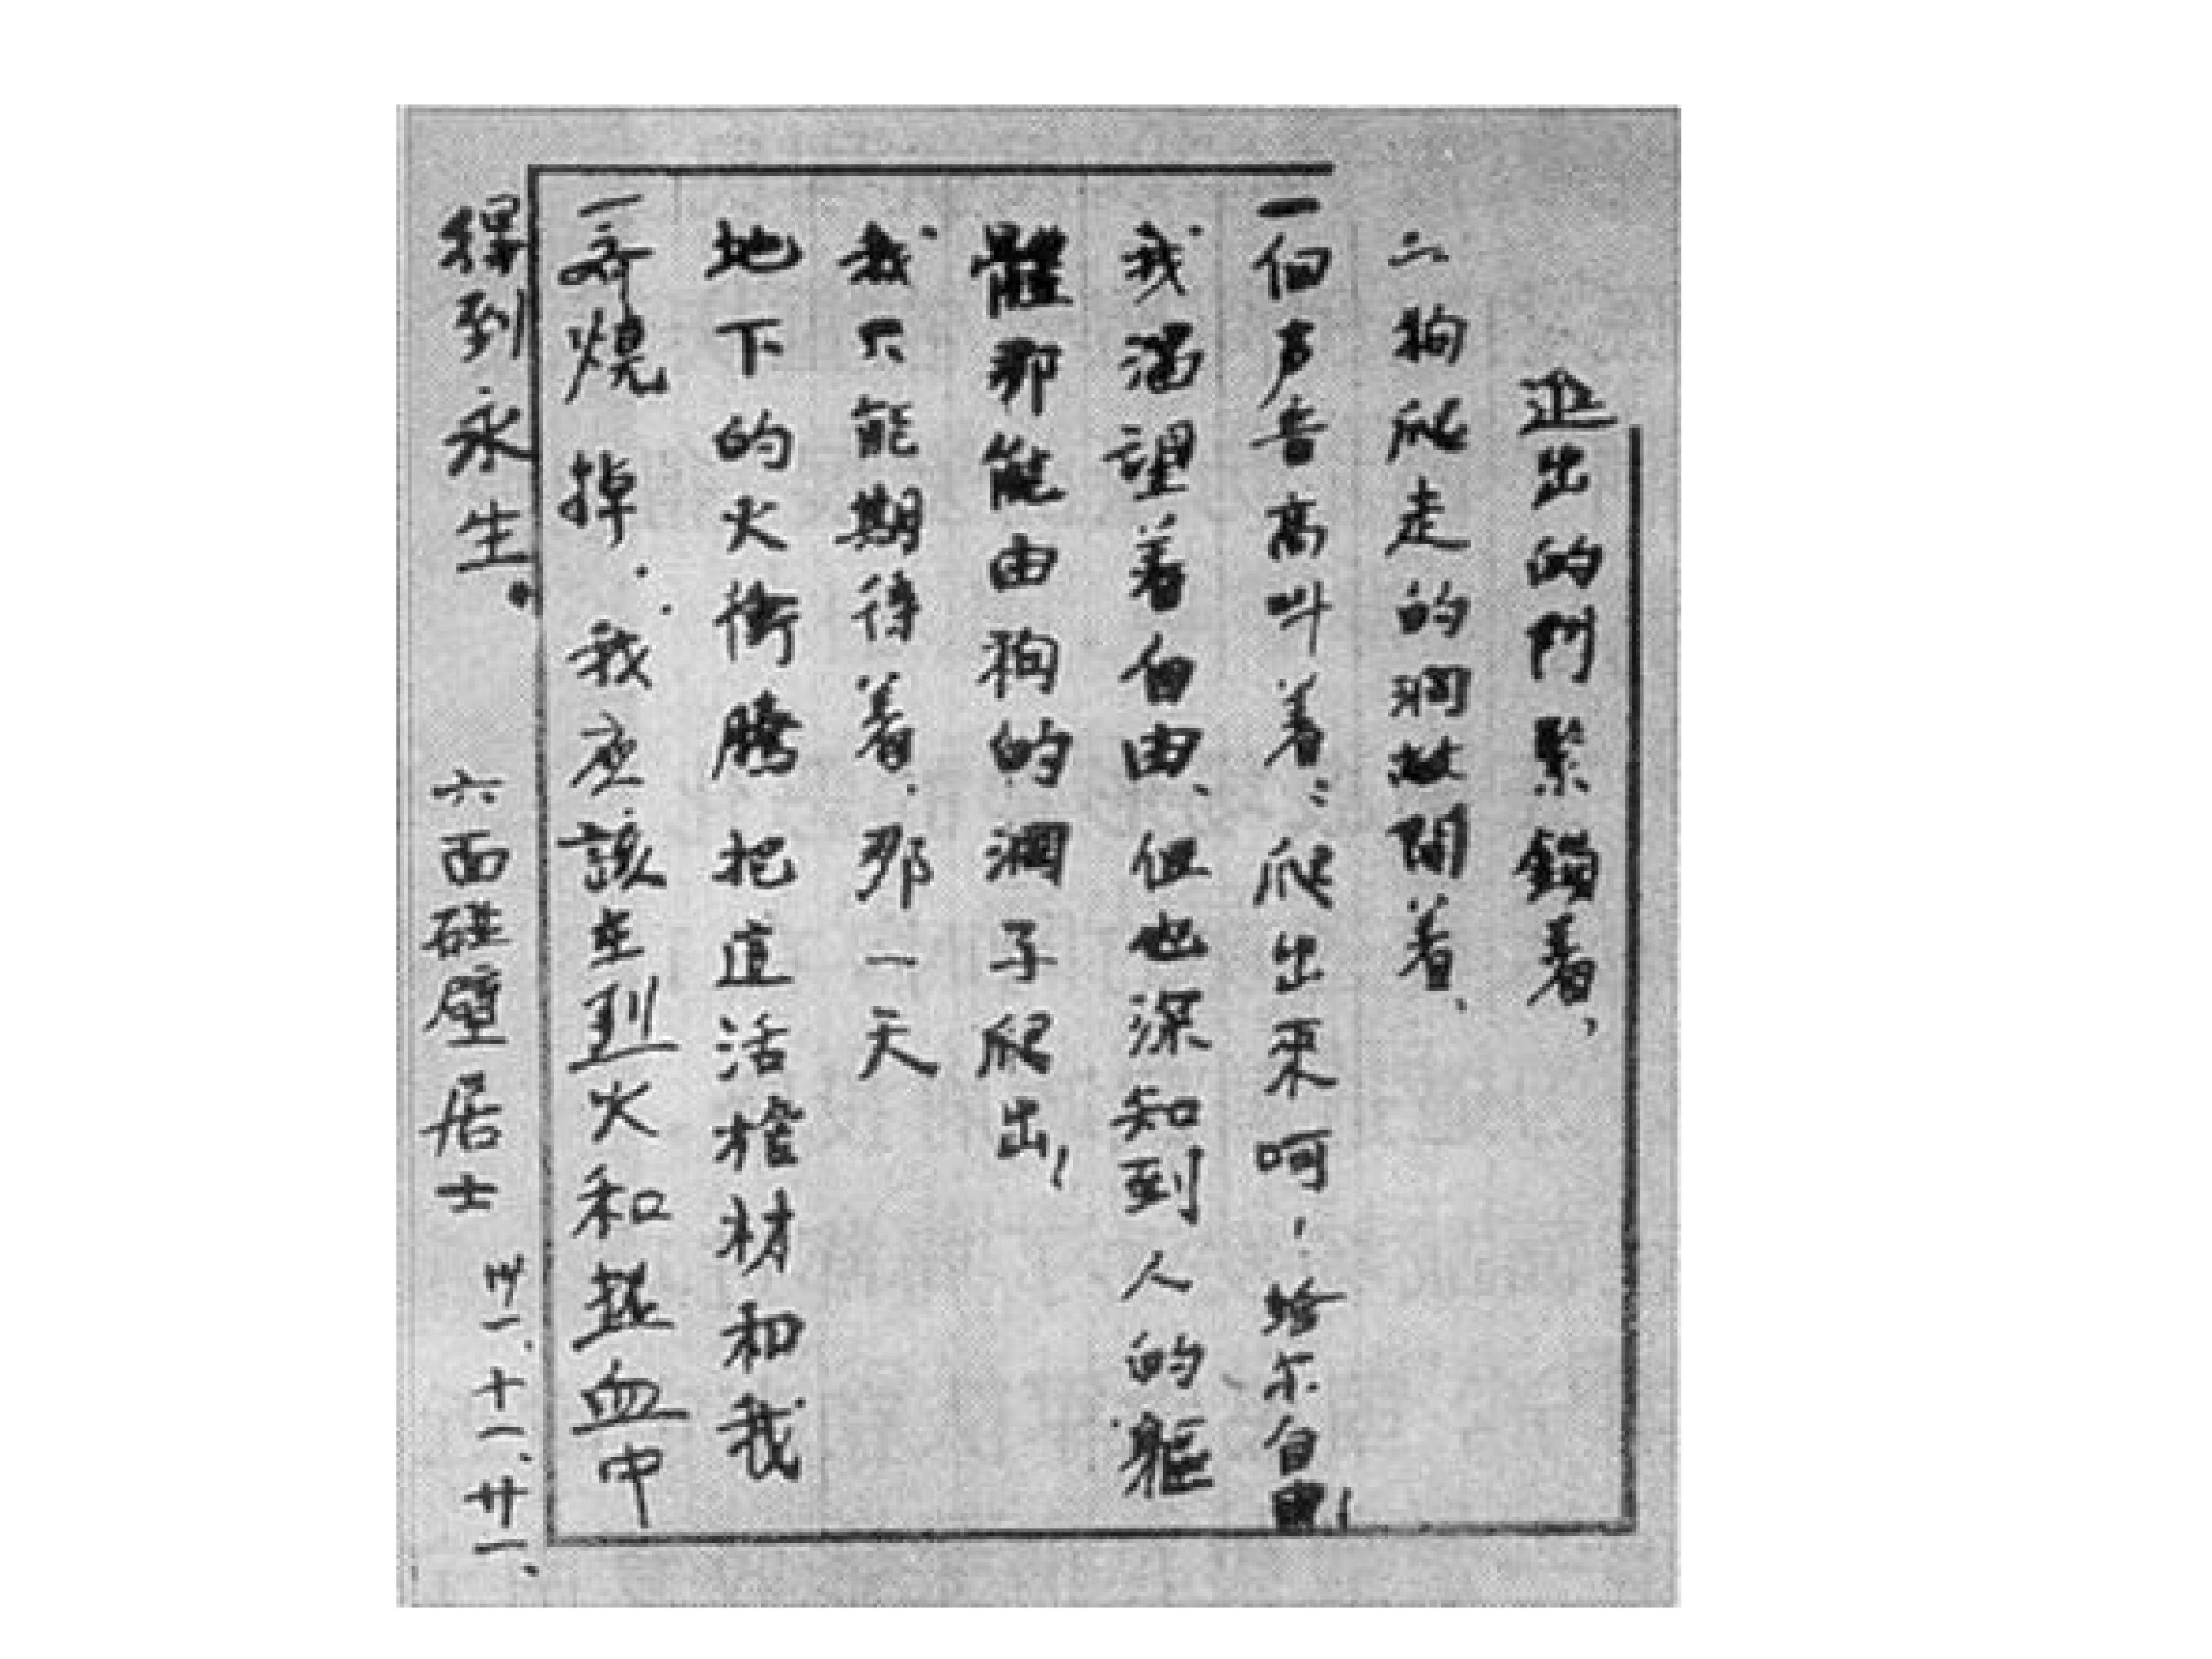 進出的門緊鎖着，
狗爬走的洞敞開着、
一個声音高叫着：爬出來呵，給尔自由！
我渴望着自由、但也深知到人的軀
體那能由狗的洞子爬出！
我只能期待着、那一天
地下的火衝騰 把這活棺材和我
一齊燒掉. 我应該在烈火和熱血中
得到永生。 六面碰壁居士 卅一、十一、廿一、